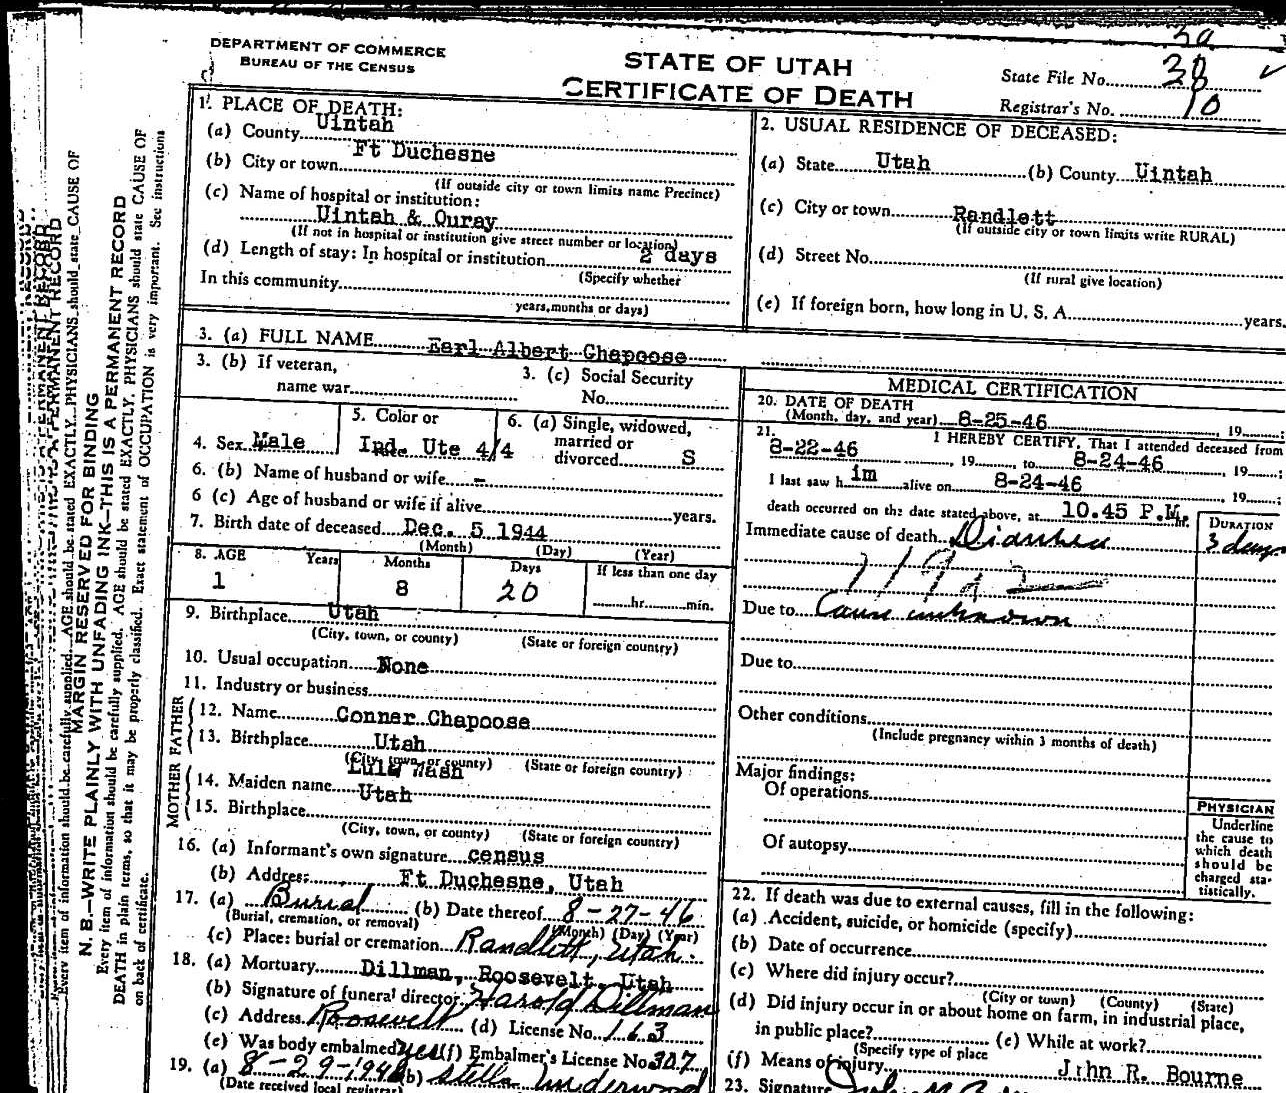 DEPARTMENT OF COMMERCE
BUREAU OF THE CENSUS
STATE OF UTAH
CERTIFICATE OF DEATH
State File No. 38
Registrar's No. 10
1. PLACE OF DEATH:
(a) County Uintah
(b) City or town Ft Duchesne
(If outside city or town limits name Precinct)
(c) Name of hospital or institution:
Uintah & Ouray
(If not in hospital or institution give street number or location)
(d) Length of stay: In hospital or institution 2 days
(Specify whether
In this community
years, months or days)
2. USUAL RESIDENCE OF DECEASED:
(a) State Utah (b) County Uintah
(c) City or town Randlett
(If outside city or town limits write RURAL)
(d) Street No.
(If rural give location)
(e) If foreign born, how long in U. S. A. years.
3. (a) FULL NAME Earl Albert Chapoose
3. (b) If veteran,
name war
3. (c) Social Security
No.
4. Sex Male
5. Color or
Ind. Ute 4/4
6. (a) Single, widowed,
married or
divorced S
6. (b) Name of husband or wife -
6 (c) Age of husband or wife if alive years.
7. Birth date of deceased Dec. 5 1944
(Month) (Day) (Year)
8. AGE Years Months Days If less than one day
1 8 20 hr. min.
9. Birthplace Utah
(City, town, or county) (State or foreign country)
10. Usual occupation None
11. Industry or business
FATHER
12. Name Conner Chapoose
13. Birthplace Utah
(City, town, or county) (State or foreign country)
MOTHER
14. Maiden name Lulu Wash
15. Birthplace Utah
(City, town, or county) (State or foreign country)
16. (a) Informant's own signature census
(b) Address Ft Duchesne, Utah
17. (a) Burial (b) Date thereof 8-27-46
(Burial, cremation, or removal) (Month) (Day) (Year)
(c) Place: burial or cremation Randlett, Utah.
18. (a) Mortuary Dillman, Roosevelt, Utah
(b) Signature of funeral director Harold Dillman
(c) Address Roosevelt (d) License No. 163
(e) Was body embalmed yes (f) Embalmer's License No 307
19. (a) 8-29-1946 (b) Stella Underwood
(Date received local registrar)
MEDICAL CERTIFICATION
20. DATE OF DEATH
(Month, day, and year) 8-25-46, 19 ;
21. I HEREBY CERTIFY, That I attended deceased from
8-22-46, 19 , to 8-24-46, 19 ;
I last saw h im alive on 8-24-46, 19 ;
death occurred on the date stated above, at 10.45 P.M. hr.
Immediate cause of death Diarrhea
DURATION
3 days
119 a 2
Due to Cause unknown
Due to
Other conditions
(Include pregnancy within 3 months of death)
Major findings:
Of operations
Of autopsy
PHYSICIAN
Underline
the cause to
which death
should be
charged sta-
tistically.
22. If death was due to external causes, fill in the following:
(a) Accident, suicide, or homicide (specify)
(b) Date of occurrence
(c) Where did injury occur?
(City or town) (County) (State)
(d) Did injury occur in or about home on farm, in industrial place,
in public place? (e) While at work?
(Specify type of place
(f) Means of injury John R. Bourne
23. Signature
MARGIN RESERVED FOR BINDING
N. B.—WRITE PLAINLY WITH UNFADING INK—THIS IS A PERMANENT RECORD
Every item of information should be carefully supplied. AGE should be stated EXACTLY. PHYSICIANS should state CAUSE OF
DEATH in plain terms, so that it may be properly classified. Exact statement of OCCUPATION is very important. See instructions
on back of certificate.